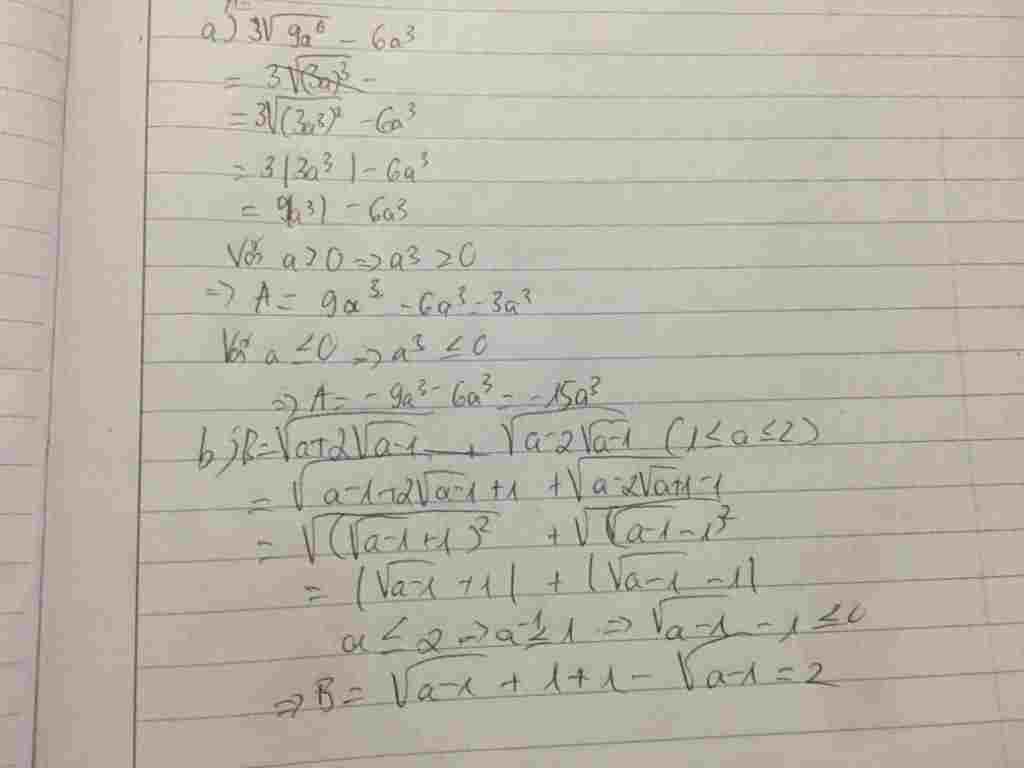 a) 3√9a⁶ - 6a³
= 3√(3a)³ -
= 3√(3a³)² - 6a³
= 3|3a³| - 6a³
= 9|a³| - 6a³
Với a > 0 => a³ > 0
=> A = 9a³ - 6a³ = 3a³
Với a ≤ 0 => a³ ≤ 0
=> A = -9a³ - 6a³ = -15a³
b) B = √(a+2√(a-1)) + √(a-2√(a-1)) (1 ≤ a ≤ 2)
= √(a-1+2√(a-1)+1) + √(a-2√(a+1)-1)
= √((√(a-1)+1)²) + √((√(a-1)-1)²)
= |√(a-1)+1| + |√(a-1)-1|
a ≤ 2 => a-1 ≤ 1 => √(a-1) - 1 ≤ 0
=> B = √(a-1) + 1 + 1 - √(a-1) = 2